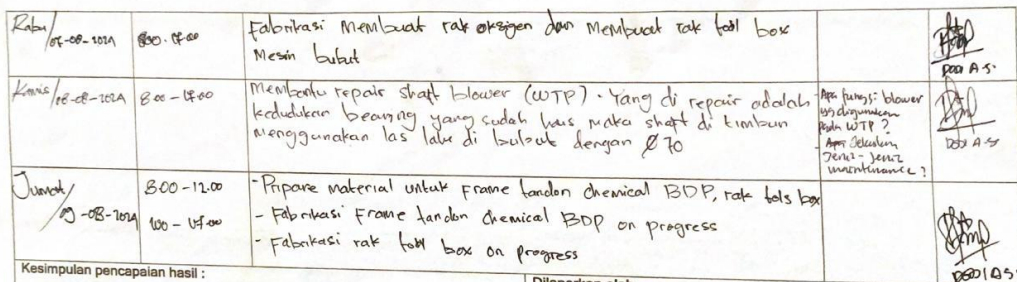 Rabu/07-08-2024
800 - 17.00
Fabrikasi Membuat rak oksigen dan Membuat rak tool box
Mesin bubut
DODI A.S.
Kamis/08-08-2024
8.00 - 17.00
Membantu repair shaft blower (WTP). Yang di repair adalah
kedudukan bearing yang sudah haus maka shaft di timbun
menggunakan las lalu di bubut dengan Ø 70
- Apa fungsi blower
yg digunakan
pada WTP?
- Jelaskan
Jenis-jenis
maintenance?
DODI A.S
Jumat/
09-08-2024
8.00 - 12.00
1.00 - 17.00
- Pripare material untuk Frame tandon chemical BDP, rak tols box
- Fabrikasi Frame tandon chemical BDP on progress
- Fabrikasi rak tool box on progress
DODI A.S
Kesimpulan pencapaian hasil :
Dilaporkan oleh